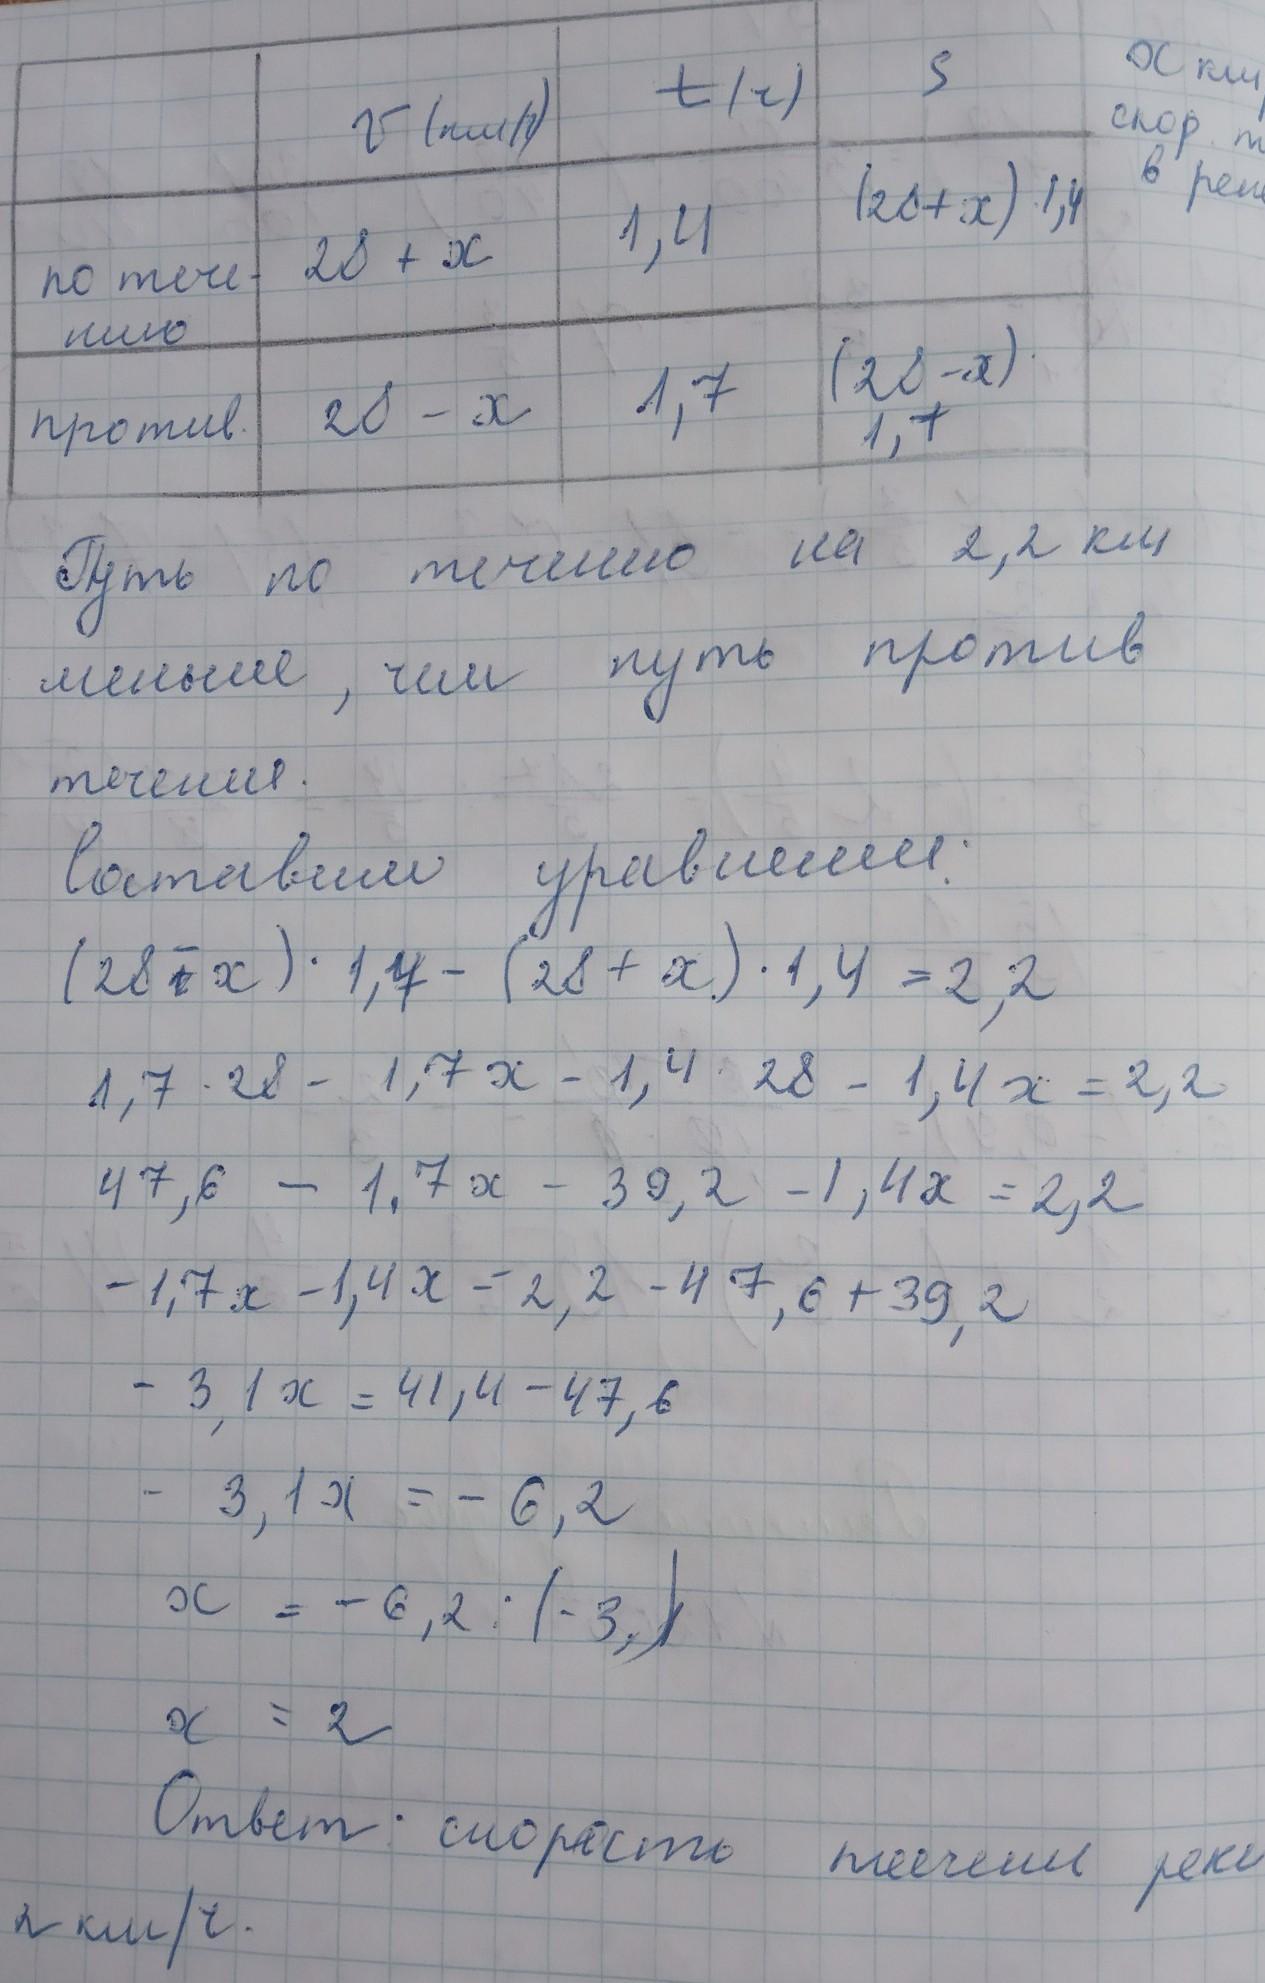 v (км/ч) t (ч) S
x км/
скор. т
в реке
по тече- 28 + x 1,4 (28 + x) · 1,4
нию
против. 28 - x 1,7 (28 - x) ·
1,7
Путь по течению на 2,2 км
меньше, чем путь против
течения.
Составим уравнение:
(28 - x) · 1,7 - (28 + x) · 1,4 = 2,2
1,7 · 28 - 1,7x - 1,4 · 28 - 1,4x = 2,2
47,6 - 1,7x - 39,2 - 1,4x = 2,2
-1,7x - 1,4x = 2,2 - 47,6 + 39,2
- 3,1x = 41,4 - 47,6
- 3,1x = - 6,2
x = - 6,2 : (- 3,1)
x = 2
Ответ: скорость течения реки
2 км/ч.